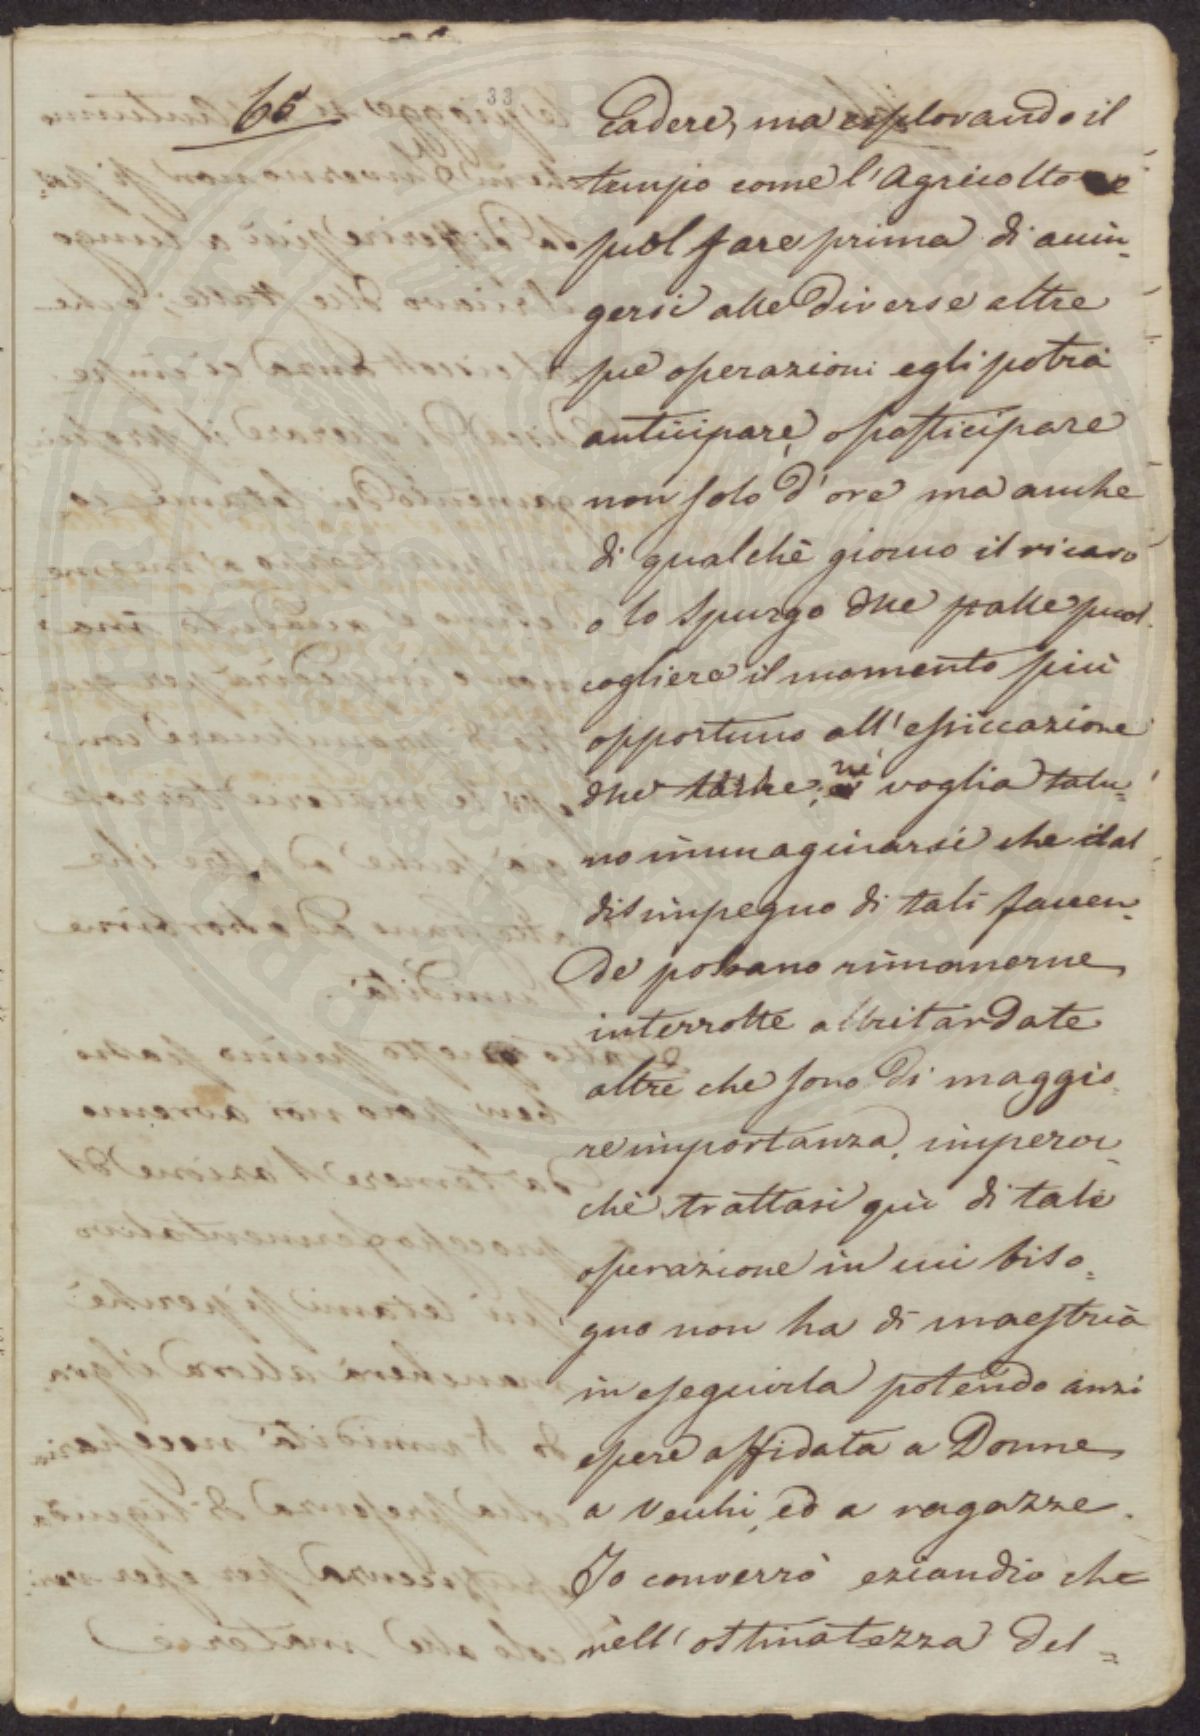 65
33
Cadere, ma esplorando il
tempo come l'Agricoltore
puol fare prima di accin=
gersi alle diverse altre
sue operazioni egli potrà
anticipare, o posticipare
non solo d'ore ma anche
di qualche giorno il ricavo
o lo spurgo dlle stalle, puol
cogliere il momento più
opportuno all'essiccazione
dlle; nè voglia talu=
no immaginarsi che dal
disimpegno di tali faccen=
de possano rimanerne
interrotte o ritardate
altre che sono di maggio
re importanza, imperoc=
chè trattasi quì di tale
operazione in cui biso=
gno non ha di maestria
in eseguirla potendo anzi
essere affidata a Donne
a Vecchi, ed a ragazze.
Io converrò eziandio che
nell'ostinatezza del=